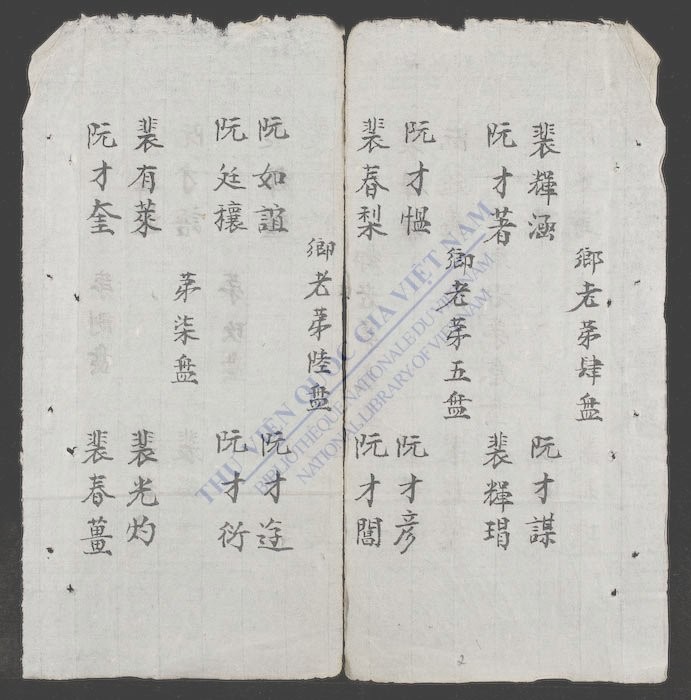 鄉老苐肆盘
裴輝涵 阮才謀
阮才著 裴輝瑁
鄉老苐五盘
阮才愠 阮才彦
裴春梨 阮才閶
鄉老苐陸盘
阮如誼 阮才途
阮廷穰 阮才衍
苐柒盘
裴有萊 裴光灼
阮才奎 裴春薑
THƯ VIỆN QUỐC GIA VIỆT NAM
BIBLIOTHÈQUE NATIONALE DU VIETNAM
NATIONAL LIBRARY OF VIETNAM
2